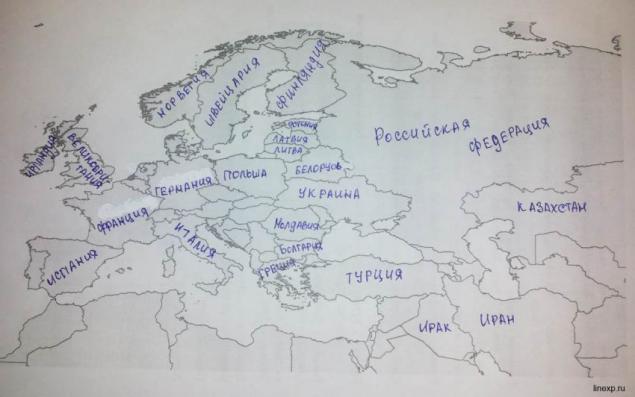 НОРВЕГИЯ
ШВЕЙЦАРИЯ
ФИНЛЯНДИЯ
РОССИЙСКАЯ
ФЕДЕРАЦИЯ
ЛАТВИЯ
ЛИТВА
ИРЛАНДИЯ
ВЕЛИКОБРИ-
ТАНИЯ
ГЕРМАНИЯ
ПОЛЬША
УКРАИНА
КАЗАХСТАН
ФРАНЦИЯ
ИТАЛИЯ
МОЛДАВИЯ
БОЛГАРИЯ
ИСПАНИЯ
ГРЕЦИЯ
ТУРЦИЯ
ИРАК
ИРАН
linexp.ru